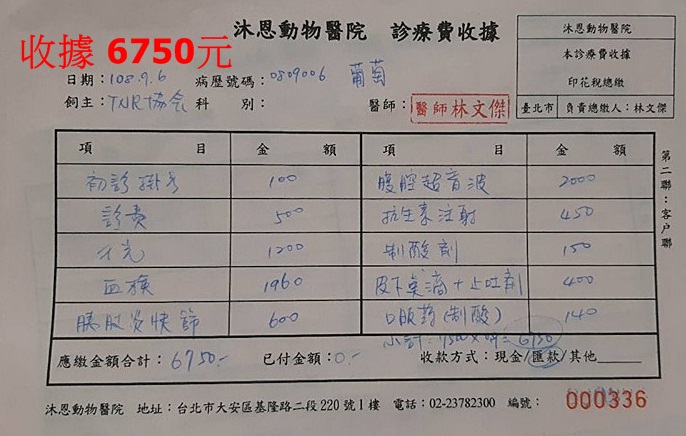 收據 6750元
沐恩動物醫院 診療費收據
沐恩動物醫院
本診療費收據
印花稅總繳
臺北市 負責總繳人：林文傑
日期：108.9.6 病歷號碼：0809006 葡萄
飼主：TNR協会 科 別： 醫師： 醫師 林文傑
項 目 金 額 項 目 金 額
初診掛号 100 腹腔超音波 2000
診費 500 抗生素注射 450
X光 1200 制酸剤 150
血檢 1960 皮下点滴+止吐剤 400
胰臟炎快篩 600 口服葯(制酸) 140
小計：7500×0.9=6750
應繳金額合計：6750.- 已付金額：0.- 收款方式：現金/匯款/其他
第二聯：客戶聯
沐恩動物醫院 地址：台北市大安區基隆路二段220號1樓 電話：02-23782300 編號： 000336